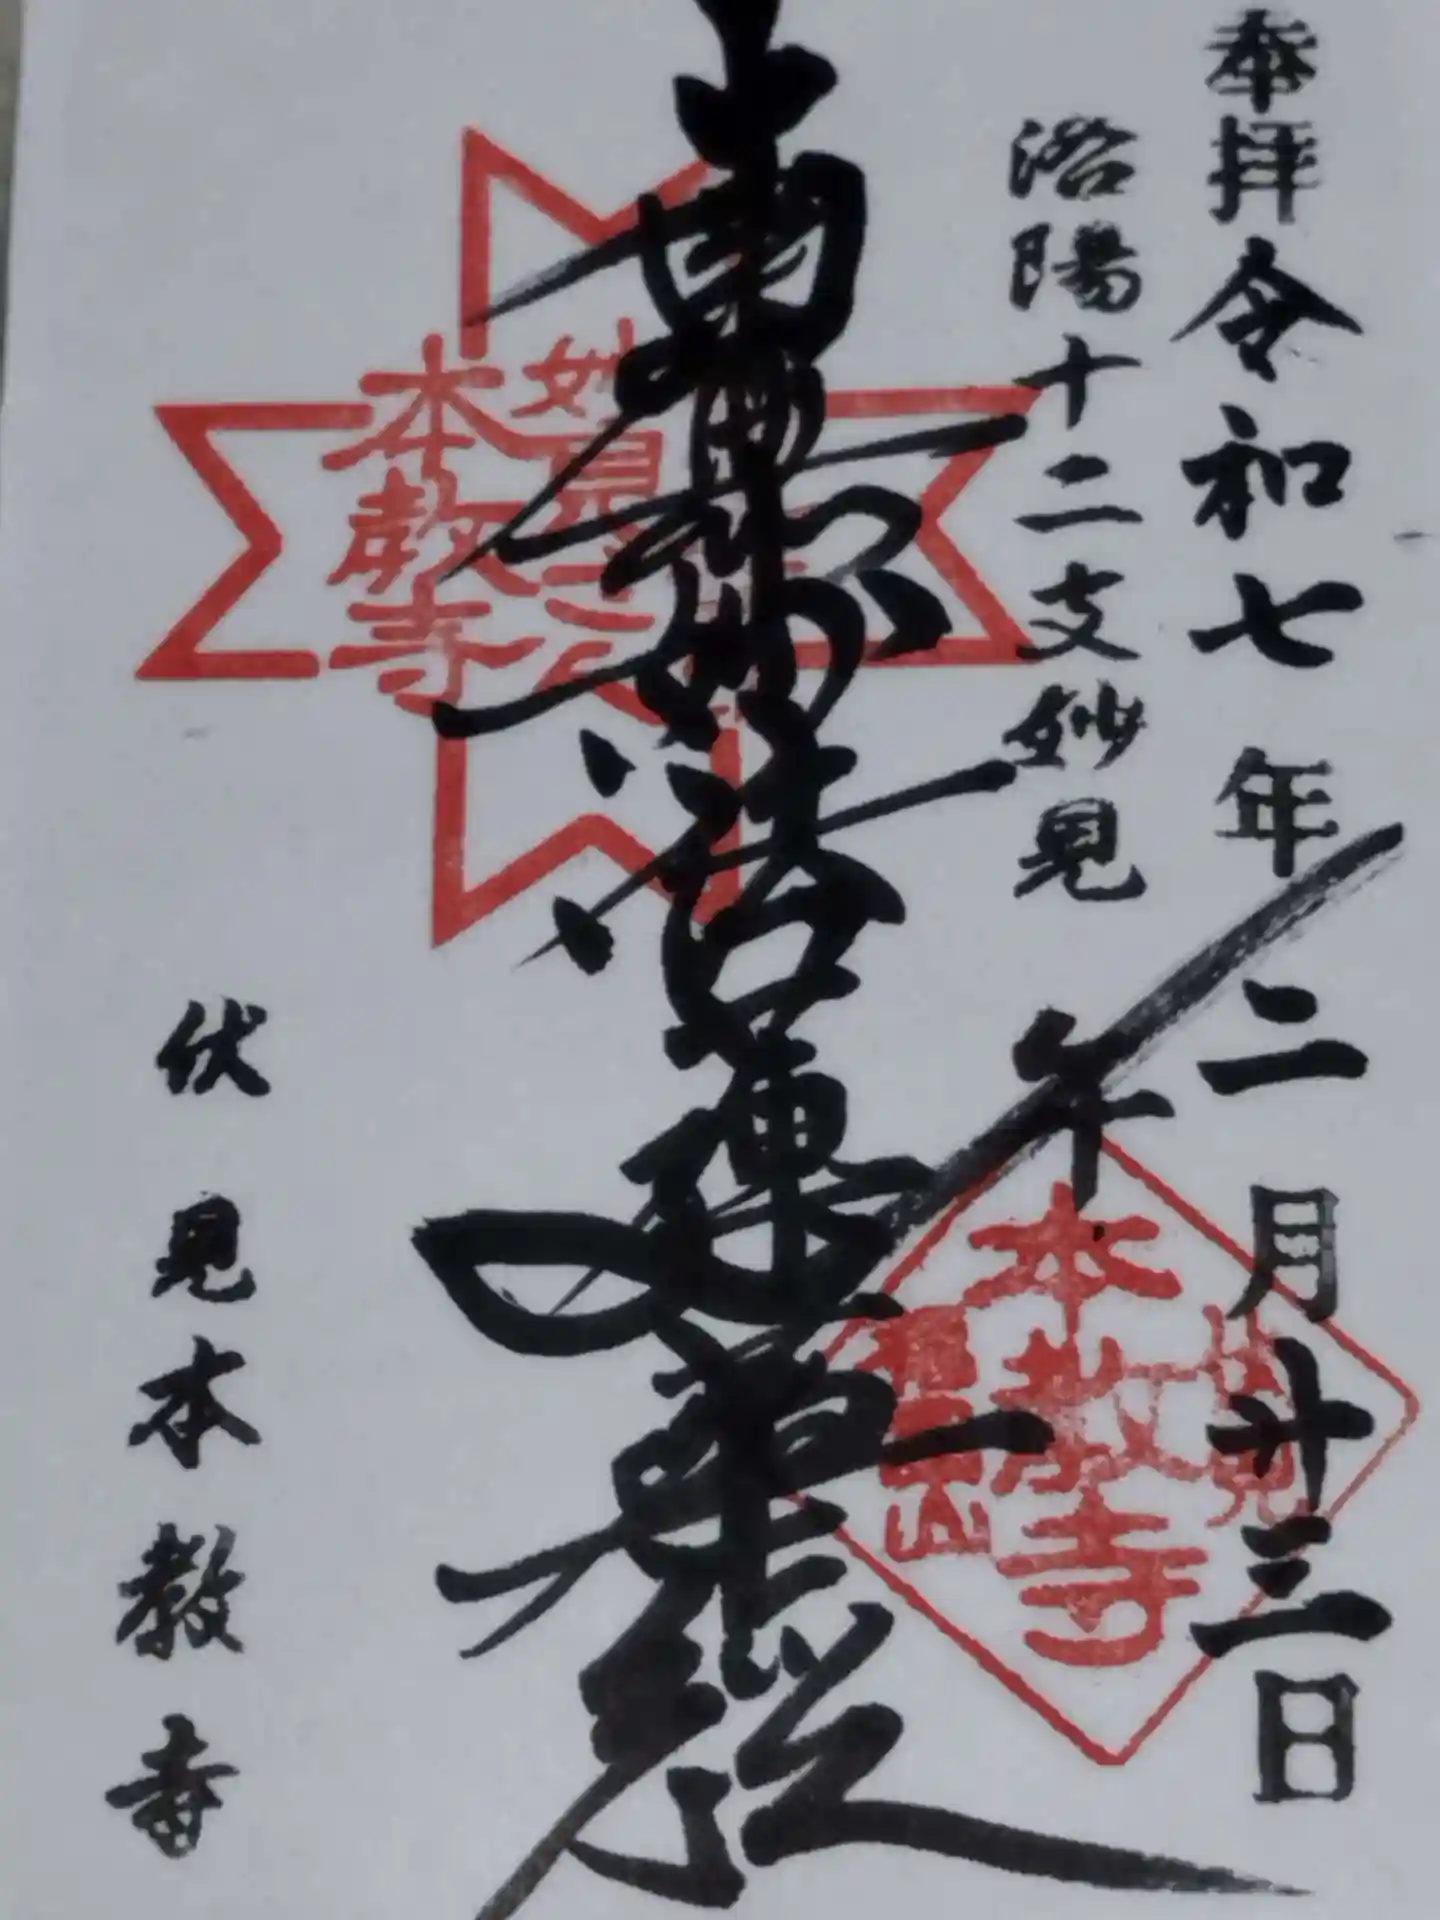 奉拝 令和七年二月廿三日
洛陽十二支妙見 午
南無妙法蓮華経
妙見
本教寺
妙見
本教寺
伏見本教寺